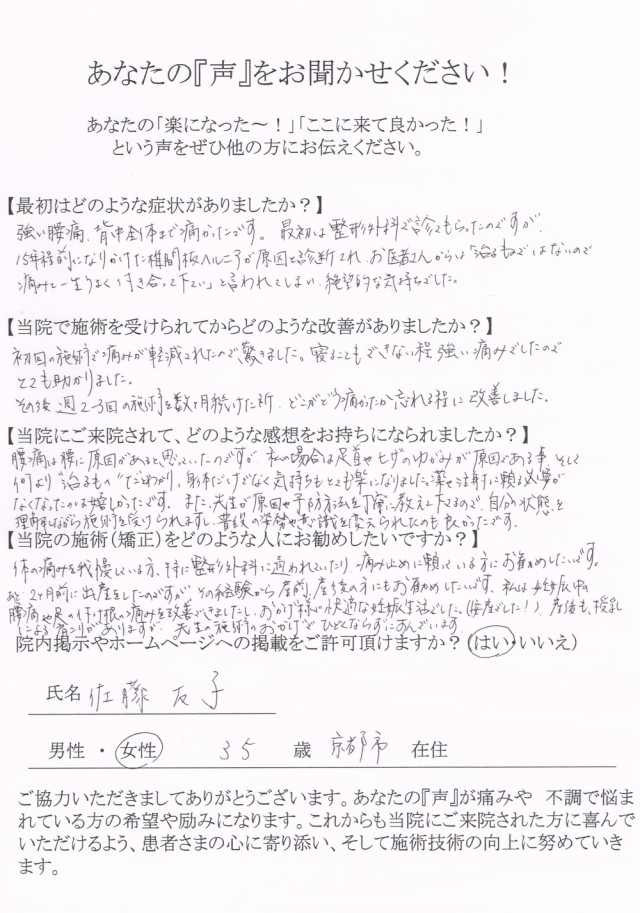 あなたの『声』をお聞かせください！
あなたの「楽になった～！」「ここに来て良かった！」
という声をぜひ他の方にお伝えください。
【最初はどのような症状がありましたか？】
強い腰痛、背中全体まで痛かったです。最初は整形外科で診てもらったのですが、
15年程前になりかけた椎間板ヘルニアが原因と診断され、お医者さんからは"治るものではないので
痛みと一生うまく付き合って下さい"と言われてしまい、絶望的な気持ちでした。
【当院で施術を受けられてからどのような改善がありましたか？】
初回の施術で痛みが軽減されたので、驚きました。寝ることもできない程強い痛みでしたので
とても助かりました。
その後週2~3回の施術を数ヶ月続けた所、どこがどう痛かったか忘れる程に改善しました。
【当院にご来院されて、どのような感想をお持ちになられましたか？】
腰痛は腰に原因があると思っていたのですが、私の場合は足首やヒザのゆがみが原因である事、そして
何より"治るもの"だとわかり、身体だけでなく気持ちもとても楽になりました。薬や注射に頼る必要が
なくなったのは嬉しかったです。また、先生が原因や予防方法を丁寧に教えて下さるので、自分の状態を
理解しながら施術を受けられますし、普段の姿勢や意識を変えられたのも良かったです。
【当院の施術（矯正）をどのような人にお勧めしたいですか？】
体の痛みを我慢している方、特に整形外科に通われていたり、痛み止めに頼っている方にお勧めしたいです。
あと2ヶ月前に出産をしたのですが、その経験から産前、産後の方にもお勧めしたいです。私は妊娠中の
腰痛や足の付け根の痛みを改善できましたし、おかげ様で快適な妊娠生活でした。(安産でした！)産後も、授乳
による肩こりがありますが、先生の施術のおかげでひどくならずにすんでいます
院内掲示やホームページへの掲載をご許可頂けますか？（はい・いいえ）
氏名 佐藤 友子
男性 ・ 女性 35 歳 京都市 在住
ご協力いただきましてありがとうございます。あなたの『声』が痛みや 不調で悩ま
れている方の希望や励みになります。これからも当院にご来院された方に喜んで
いただけるよう、患者さまの心に寄り添い、そして施術技術の向上に努めていき
ます。